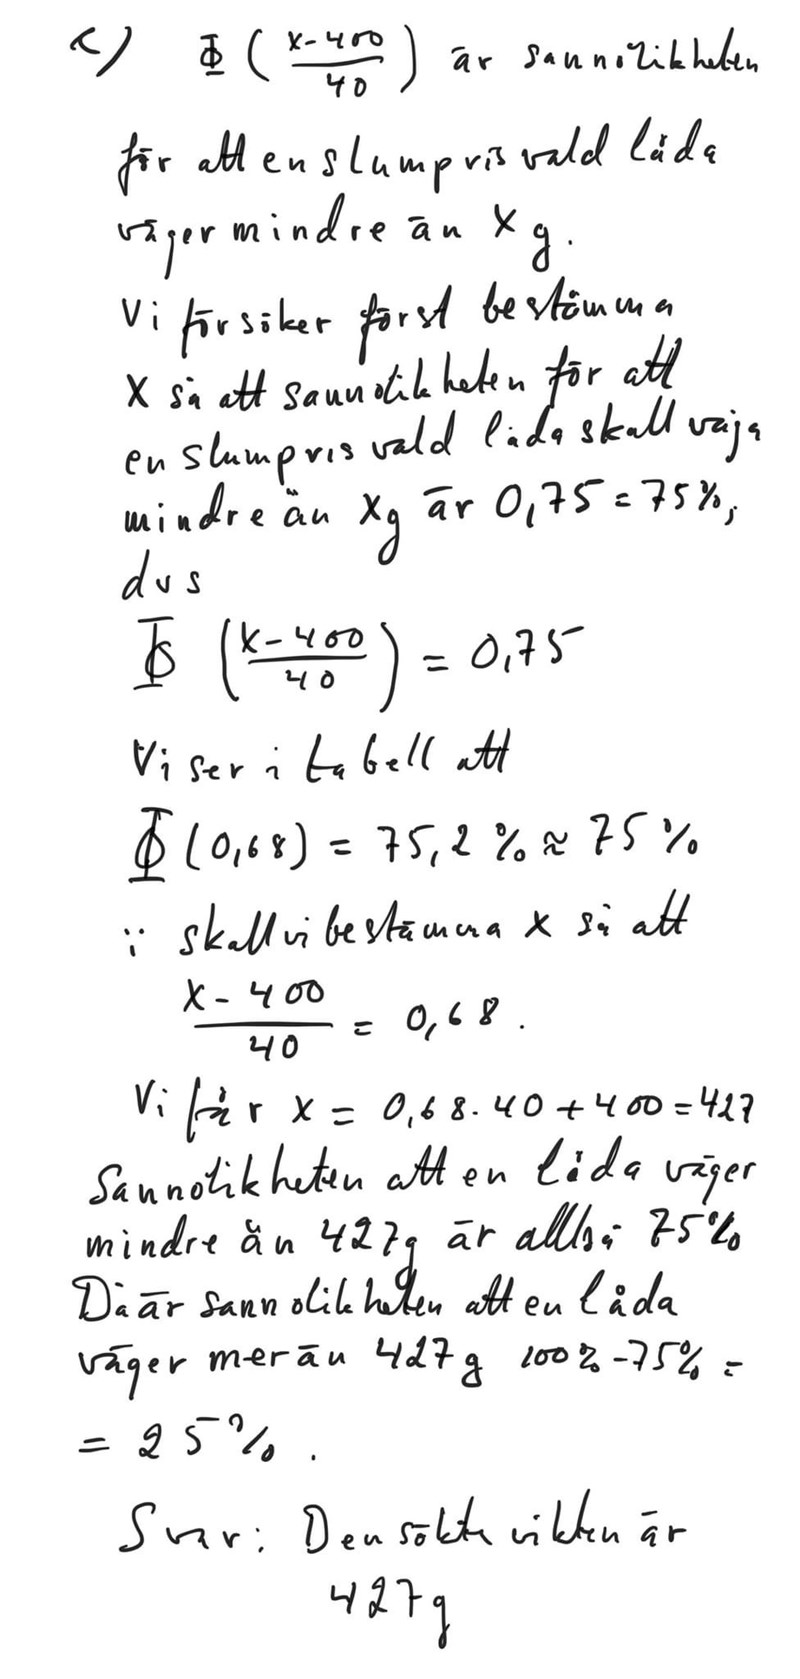 c) Φ ( (x-400)/40 ) är sannolikheten
för att en slumpvis vald låda
väger mindre än x g.
Vi försöker först bestämma
x så att sannolikheten för att
en slumpvis vald låda skall väga
mindre än x g är 0,75 = 75%,
dvs
Φ ( (x-400)/40 ) = 0,75
Vi ser i tabell att
Φ (0,68) = 75,2 % ≈ 75 %
∵ skall vi bestämma x så att
(x - 400)/40 = 0,68.
Vi får x = 0,68 · 40 + 400 = 427
Sannolikheten att en låda väger
mindre än 427g är alltså 75%
Då är sannolikheten att en låda
väger mer än 427 g 100% - 75% =
= 25%.
Svar: Den sökta vikten är
427g